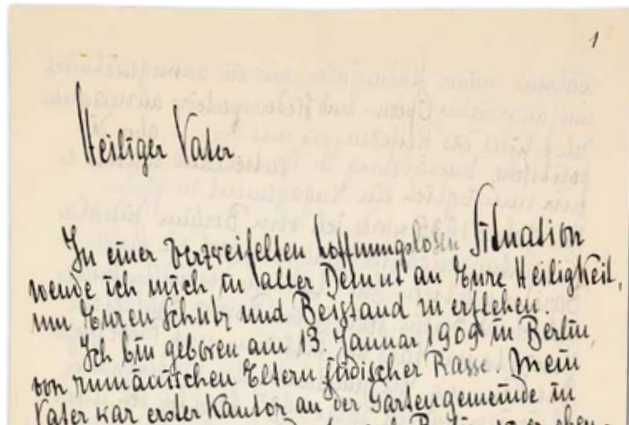 1
Heiliger Vater
In einer verzweifelten hoffnungslosen Situation
wende ich mich in aller Demut an Eure Heiligkeit,
um Euren Schutz und Beistand zu erflehen.
Ich bin geboren am 13. Januar 1909 in Berlin,
von rumänischen Eltern jüdischer Rasse. Mein
Vater war erster Kantor an der Gartengemeinde in
Berlin